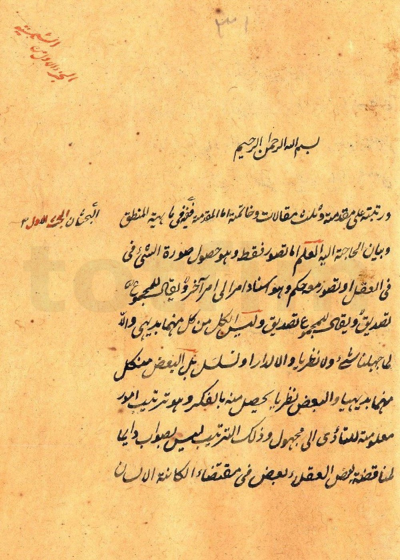 ٣١
الشمسية
الجزء الاول من
بسم الله الرحمن الرحيم
ورتبته على مقدمة وثلث مقالات وخاتمة اما المقدمة ففي ماهية المنطق
البحثان الاول
وبيان الحاجة اليه العلم اما تصور فقط وهو حصول صورة الشئ فى
فى العقل او تصور معه حكم وهو اسناد امر الى امر آخر ويقال للمجموع
تصديق ويقال للمجموع تصديق وليس الكل من كل منهما بديهى والا
لما جهلنا شئ ولا نظريا والا لدار او تسلسل بل البعض من كل
منهما بديهيا والبعض نظريا يحصل منه بالفكر وهو ترتيب امور
معلومة للتأدى الى مجهول وذلك الترتيب ليس بصواب دايما
لمناقضة بعض العقلاء بعض فى مقتضاء الانسان